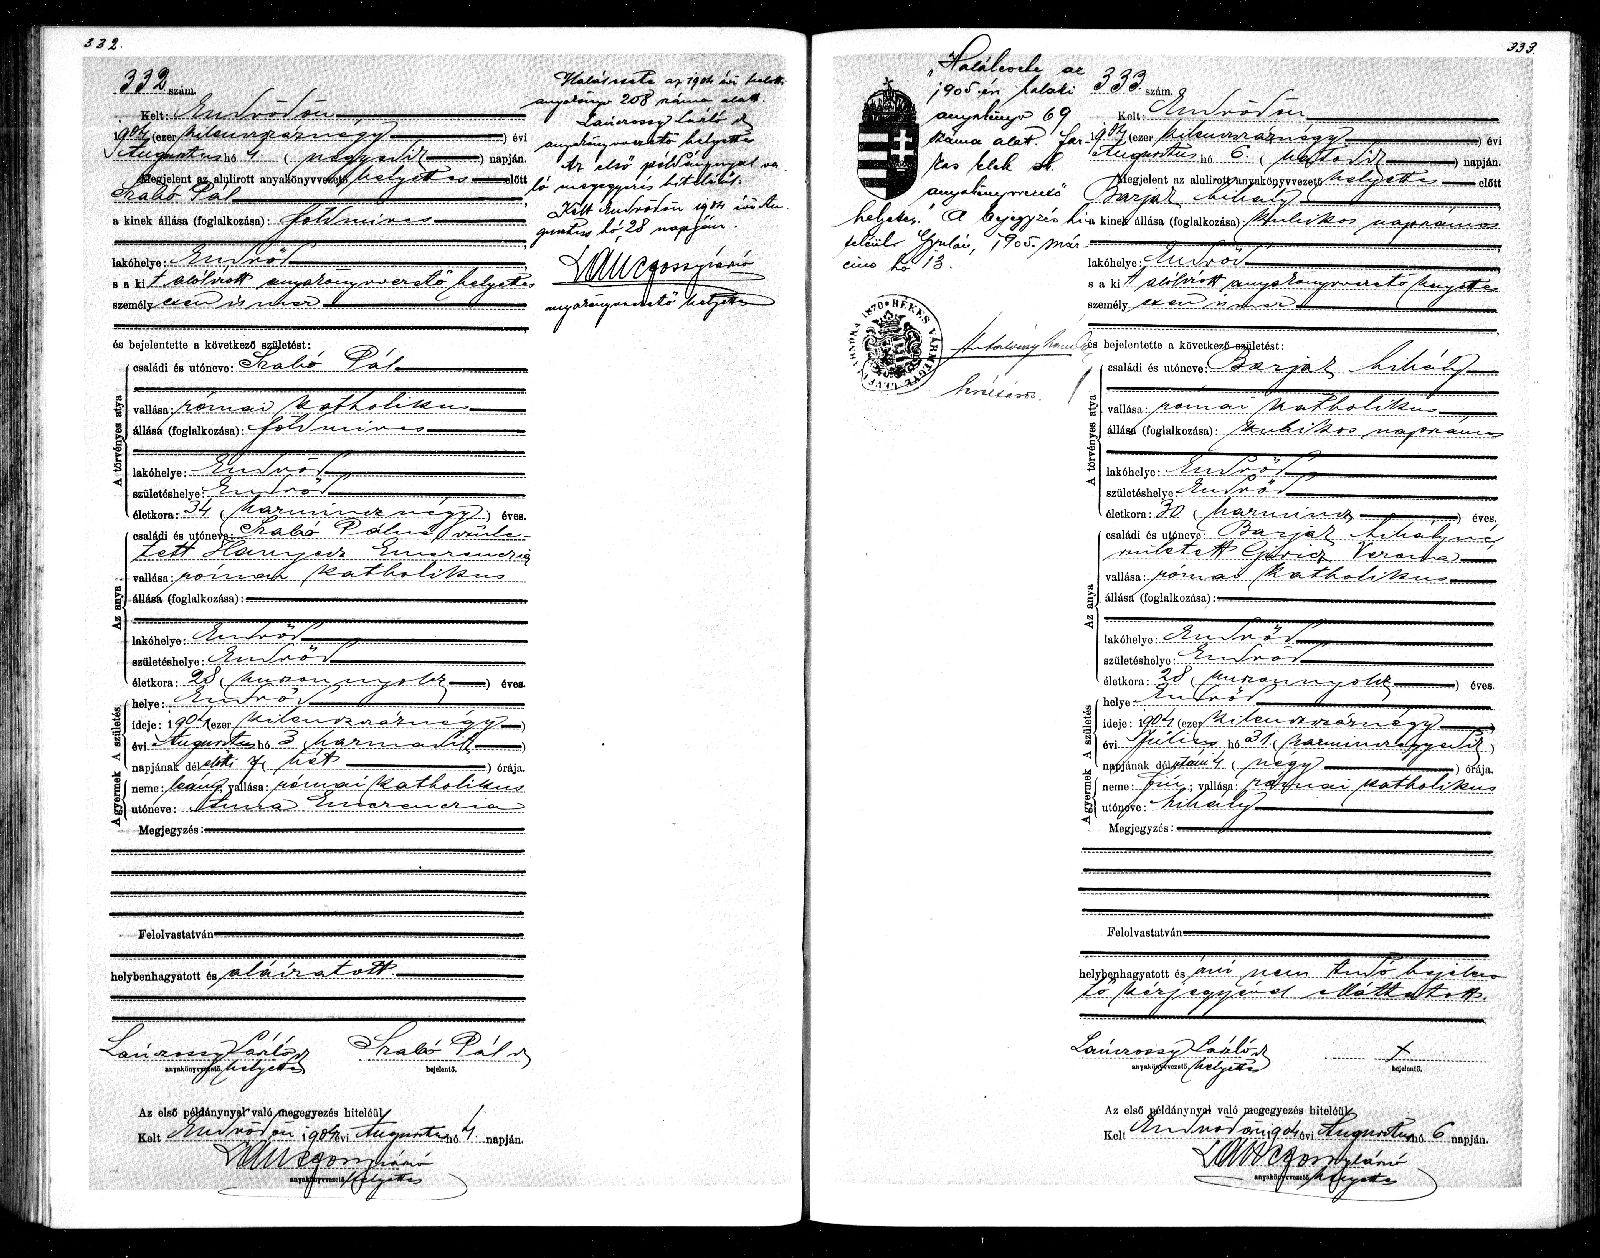 332.
332 szám.
Kelt: Endrődön
1904 (ezer kilenczszáznégy) évi
Augustus hó 4 (negyedik) napján.
Megjelent az alulirott anyakönyvvezető helyettes előtt
Szabó Pál
a kinek állása (foglalkozása): földmives
lakóhelye: Endrőd
a a ki t alólirott anyakönyvvezető helyettes
személyesen ismer
és bejelentette a következő születést:
A törvényes atya
családi és utóneve: Szabó Pál
vallása: római katholikus
állása (foglalkozása): földmives
lakóhelye: Endrőd
születéshelye: Endrőd
életkora: 34 (harmincznégy) éves.
Az anya
családi és utóneve: Szabó Pálné szüle-
tett Hanyecz Emerenczia
vallása: római katholikus
állása (foglalkozása):
lakóhelye: Endrőd
születéshelye: Endrőd
életkora: 28 (huszonnyolcz) éves.
A születés
helye: Endrőd
ideje: 1904 (ezer kilenczszáznégy)
évi Augustus hó 3 (harmadik)
napjának délelőtti 7 (hét) órája.
A gyermek
neme: leány; vallása: római katholikus
utóneve: Anna Emerenczia
Megjegyzés:
Felolvastatván
helybenhagyatott és aláiratott.
Lánczossy László
anyakönyvvezető helyettes
Szabó Pál
bejelentő.
Az első példánynyal való megegyezés hiteléül
Kelt Endrődön 1904 évi Augustus hó 4 napján.
anyakönyvvezető helyettes
Halálesete az 1904 évi halotti
anyakönyv 208 száma alatt.
Lánczossy László
anyakönyvvezető helyettes
Az első példánynyal va-
ló megegyezés hiteléül.
Kelt Endrődön 1904 évi Au-
gusztus hó 28 napján.
anyakönyvvezető helyettes
333.
"Halálesete az
1905. évi halotti
anyakönyv 69
száma alat. Far-
kas Elek
anyakönyvvezető
helyettes." A bejegyzés hi-
teléül Gyulán, 1905. már-
cius hó 13.
BÉKÉS VÁRMEGYE LEVÉLTÁRNOKA 1870
333 szám.
Kelt: Endrődön
1904 (ezer kilenczszáznégy) évi
Augustus hó 6 (hatodik) napján.
Megjelent az alulirott anyakönyvvezető helyettes előtt
Barjak Mihály
a kinek állása (foglalkozása): kubikos napszámos
lakóhelye: Endrőd
s a ki t alólirott anyakönyvvezető helyettes
személyesen ismer
és bejelentette a következő születést:
A törvényes atya
családi és utóneve: Barjak Mihály
vallása: római katholikus
állása (foglalkozása): kubikos napszámos
lakóhelye: Endrőd
születéshelye: Endrőd
életkora: 30 (harmincz) éves.
Az anya
családi és utóneve: Barjak Mihályné
született Veronа
vallása: római katholikus
állása (foglalkozása):
lakóhelye: Endrőd
születéshelye: Endrőd
életkora: 28 (huszonnyolcz) éves.
A születés
helye: Endrőd
ideje: 1904 (ezer kilenczszáznégy)
évi Július hó 31 (harminczegyedik)
napjának délutáni 4 (négy) órája.
A gyermek
neme: fiú; vallása: római katholikus
utóneve: Mihály
Megjegyzés:
Felolvastatván
helybenhagyatott és irni nem tudó bejelen-
tő kézjegyével elláttatott.
Lánczossy László
anyakönyvvezető helyettes
x
bejelentő.
Az első példánynyal való megegyezés hiteléül
Kelt Endrődön 1904 évi Augustus hó 6 napján.
anyakönyvvezető helyettes